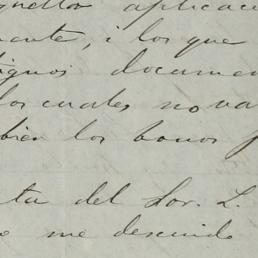 aplicac
ante, i los que
tiguos documen
los cuales no va
bien los bonos
ta del Sor. L.
o me descuido